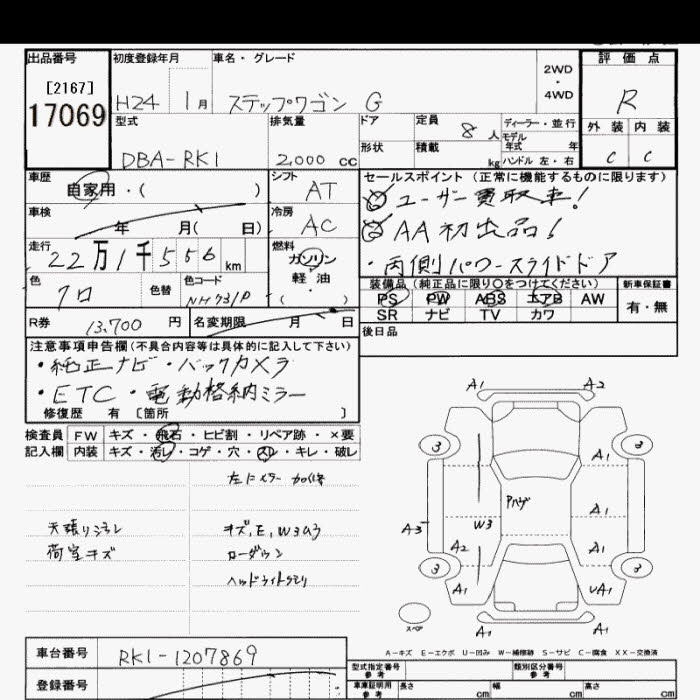 出品番号 初度登録年月 車名・グレード 評価点
[2167]
17069
H24 1月 ステップワゴン G
2WD・4WD
R
型式 排気量 ドア 定員 8人 ディーラー・並行
モデル
年式 年
外装 内装
DBA-RK1 2,000 cc 形状 積載 kg ハンドル 左・右
C C
車歴 自家用・( ) シフト AT
セールスポイント (正常に機能するものに限ります)
ユーザー買取車!
車検 年 月( 日) 冷房 AC
AA初出品!
走行 22万1千556km
燃料 ガソリン 軽油・( )
・両側パワースライドドア
色 クロ 色替 色コード NH731P
装備品 (純正品に限り○をつけてください) 新車保証書
PS PW ABS エアB AW
SR ナビ TV カワ
有・無
R券 13,700円 名変期限 月 日
後日品
注意事項申告欄(不具合内容等は具体的に記入して下さい)
・純正ナビ・バックカメラ
・ETC・電動格納ミラー
修復歴 有 〔箇所 〕
検査員 FW キズ・飛石・ヒビ割・リペア跡・×要
記入欄 内装 キズ・汚レ・コゲ・穴・スレ・キレ・破レ
天張り
荷室キズ
キズ、E、W
ローダウン
ヘッドライト
A1 A2
3 3
A1
Pハゲ
A3 W3 A1
A2 A1
3 3
A1 UA1
スペア
A1 A1
A-キズ E-エクボ U-凹み W-補修跡 S-サビ C-腐食 XX-交換済
車台番号 RK1-1207869
登録番号
型式指定番号 参考 類別区分番号 参考
車庫証明用 参考 長さ cm 幅 cm 高さ cm